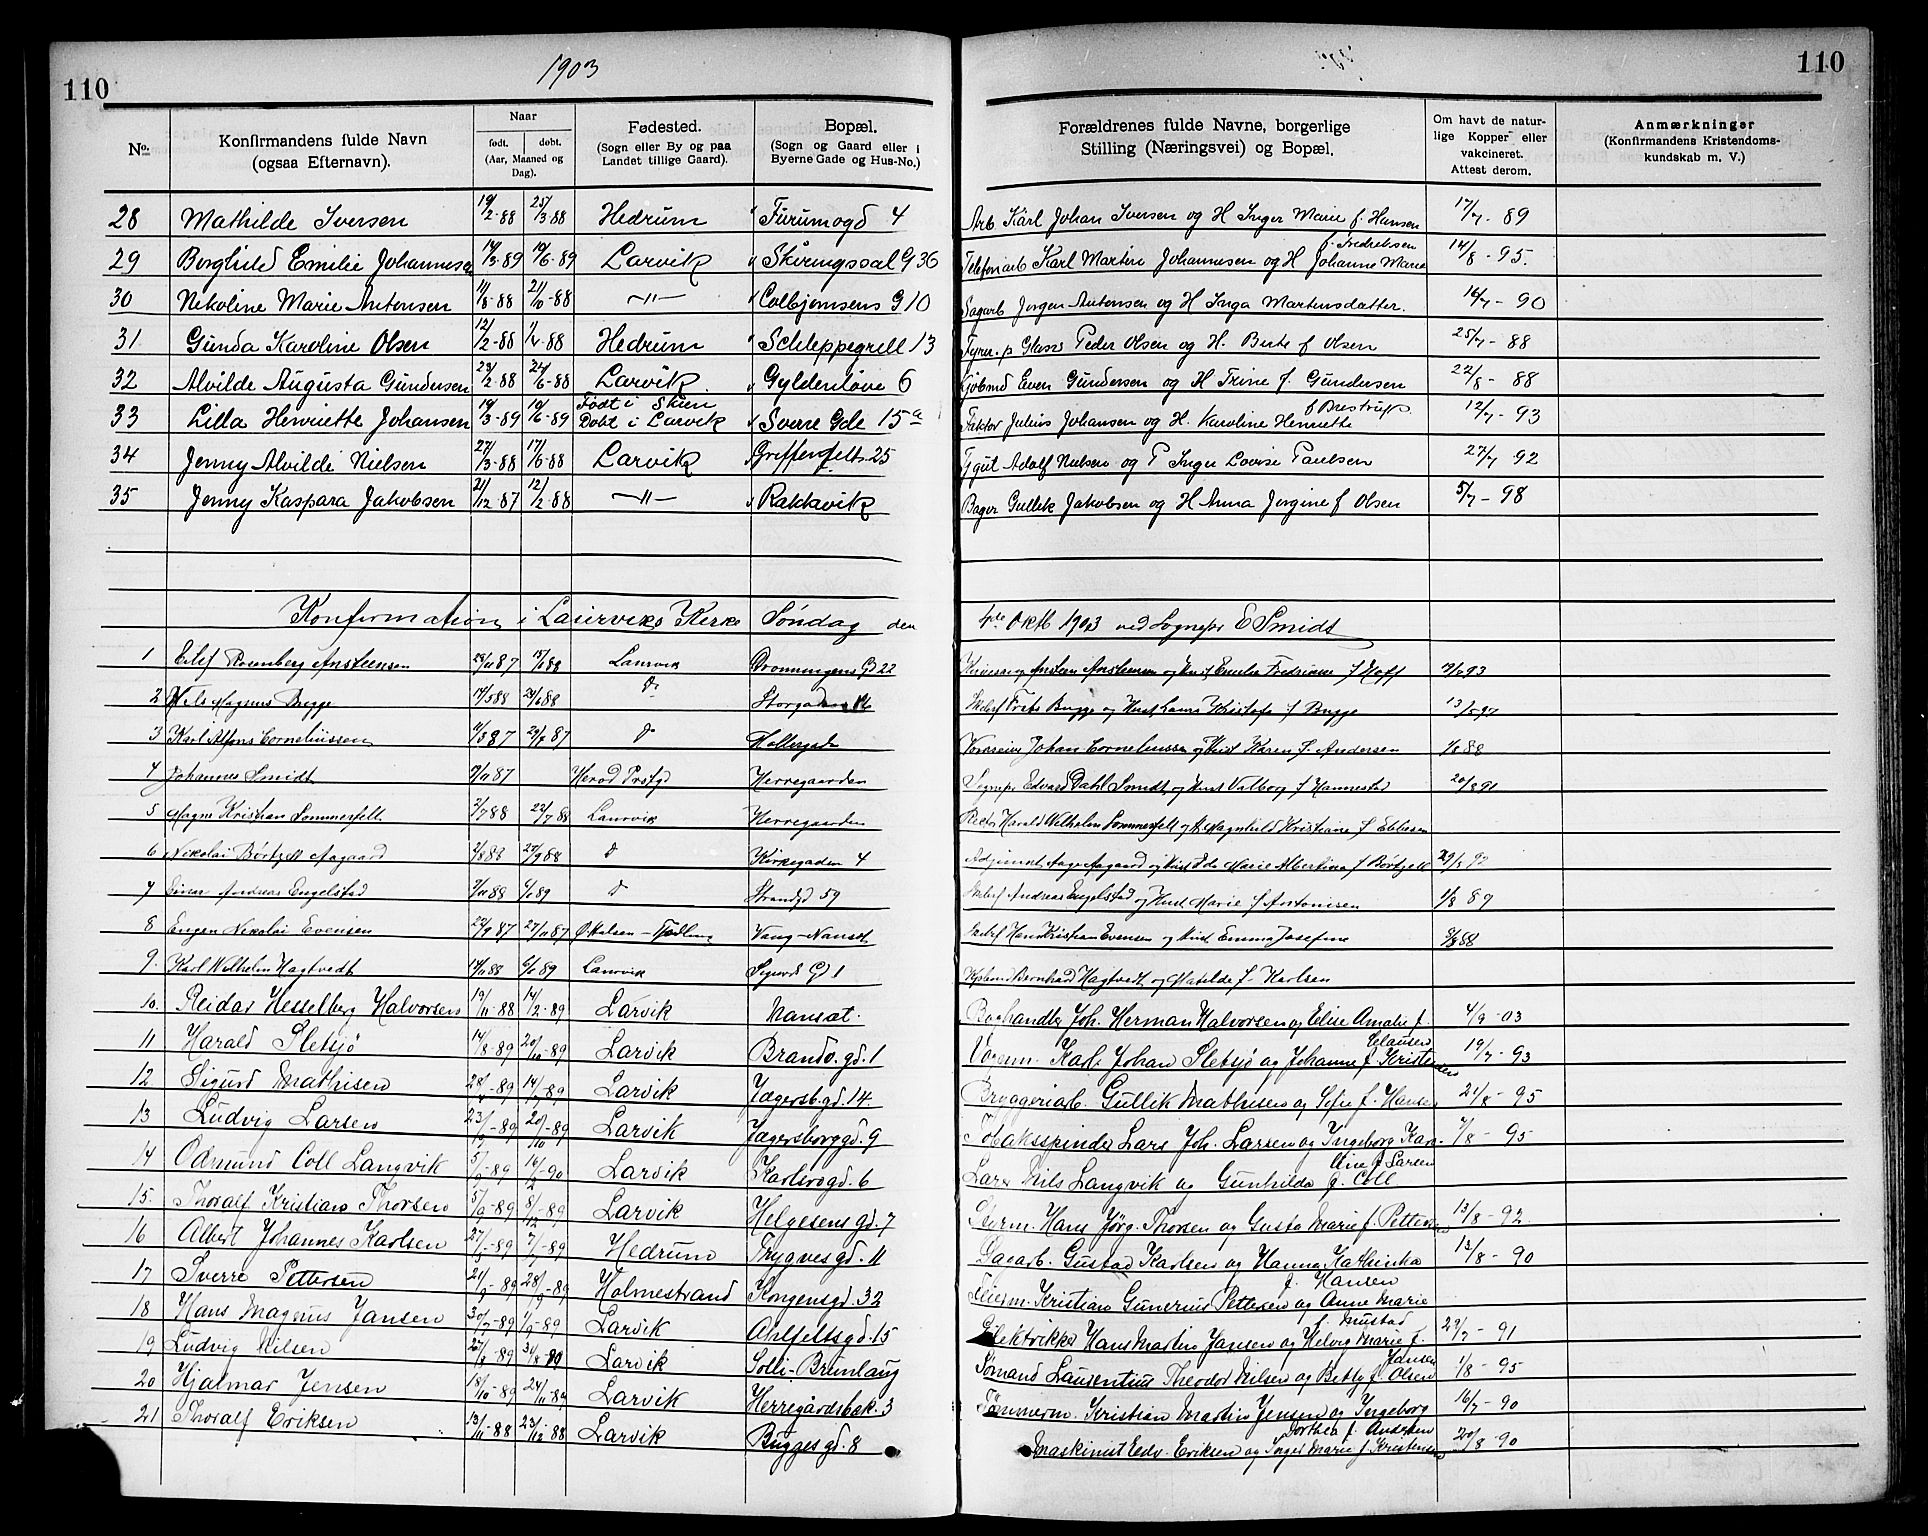 110
1903
110
No. Konfirmandens fulde Navn (ogsaa Efternavn). Naar født. døbt. (Aar, Maaned og Dag). Fødested. (Sogn eller By og paa Landet tillige Gaard). Bopæl. (Sogn og Gaard eller i Byerne Gade og Hus-No.) Forældrenes fulde Navne, borgerlige Stilling (Næringsvei) og Bopæl. Om havt de naturlige Kopper eller vakcineret. Attest derom. Anmærkninger (Konfirmandens Kristendomskundskab m. V.)
28 Mathilde Iversen 19/2-88 25/3-88 Hedrum Furumogd 4 Arb Karl Johan Iversen og H Inger Marie f. Hansen 17/7-89
29 Borghild Emilie Johannesen 14/3-89 10/6-89 Larvik Skiringssal G 36 Telefonarb Karl Martin Johannesen og H Johanne Marie f. Fredriksen 14/8-95.
30 Nikoline Marie Antonsen 11/8-88 21/10-88 -"- Colbjørnsens G 10 Sagarb Jørgen Antonsen og H Inga Martinsdatter. 16/7-90
31 Gunda Karoline Olsen 12/2-88 1/4-88 Hedrum Schleppegrell 13 Fyrer. p Glasv Peder Olsen og H. Berte f Olsen 25/7-88
32 Alvilde Augusta Gundersen 23/2-88 24/6-88 Larvik. Gyldenløve 6 Kjøbmd Even Gundersen og H Trine f. Gundersen 22/8-88
33 Lilla Henriette Johansen 19/3-89 10/6-89 Født i Skien Døbt i Larvik Sverre Gde 15a Faktor Julius Johansen og H. Karoline Henriette f Brestrup. 12/7-93
34 Jenny Alvilde Nielsen 27/3-88 17/6-88 Larvik Griffenfelts 25 Adolf Nielsen og P Inger Lovise Paulsen 27/7 92
35 Jenny Kaspara Jakobsen 21/12-87 12/2-88 -"- Rakkavik Bager Gullik Jakobsen og H Anna Jørgine f Olsen 5/7-98
Konfirmation i Laurviks Kirke Søndag den 4de Oktb 1903 ved Sognepr E Smidt
1 Eilef Rosenberg Ansteensen 87 88 Laurvik Dronningens G 22 Ansteen Ansteensen og Hust Emilie Fredrikke f Hoff 93
2 Nils Magnus Bugge 88 88 Do Storgaden Bugge og Hust Laura f Bugge
3 Karl Alfons Corneliussen 87 87 Do Møllergade Johan Corneliussen og Hust Karen f. Andersen 88
4 Johannes Smidt 87 Herregaarden Sognepr Edvard Dahl Smidt og Hust Valborg f Hannestad 91
5 Magne Kristian Sommerfelt 2/7 88 22/7 88 Laurvik Herregaarden Rector Harald Wilhelm Sommerfelt og H. Magnhild Kristiane f Ebbesen
6 Nikolai Børtzell Aagaard 88 88 Do Kirkegaden 4 Adjunct Aage Aagaard og Hust Ida Marie Albertina f Børtzell
7 Einar Andreas Engelstad 88 89 Do Strandgd 59 Andreas Engelstad og Hust Marie f Antonisen 1/8 89
8 Eugen Nikolai Evensen 87 27/11 87 Vang-Nanset Hans Kristian Evensen og Hust Emma Josefine 88
9. Karl Wilhelm Hagtvedt 88 89 Laurvik Sigurds G 1 Bernhard Hagtvedt og Matilde f. Karlsen
10. Reidar Hesselberg Halvorsen 19/11-88 14/2-89 Larvik Nanset. Boghandler Joh. Herman Halvorsen og Elise Amalie f. Clausen 4/9-03
11 Harald Sletsjø 14/8-89 20/10-89 Larvik Brandv. gd. 1 Vognm. Karl Johan Sletsjø og Johanne f. Kristensen 19/7-93
12 Sigurd Mathisen 89 89 Larvik Jægersb. gd. 14. Bryggeriarb. Gullik Mathisen og Sofie f. Hansen 21/8-95
13 Ludvig Larsen 89 20/10-89 Larvik Jægersborggd. 9 Tobaksspinder Lars Joh. Larsen og Ingeborg Karoline f. Larsen 7/8-95
14 Odmund Coll Langvik 89 90 Larvik Karlsrogd. 6 Lærer Nils Langvik og Gunhilda f. Coll
15 Thoralf Kristian Thorsen 89 8/12-89 Larvik Helgesensgd. 7 Styrm. Hans Jørg. Thorsen og Gusta Marie f. Pettersen 13/8-92.
16 Albert Johannes Karlsen 89 89 Hedrum Trygvesgd. 11 Sagarb. Gustad Karlsen og Hanna Kathinka f. Hansen 13/8-90
17 Sverre Pettersen 89 89 Holmestrand Kongensgd. 32 Feierm. Kristian Gunerius Pettersen og Anne Marie f. Mustad
18 Hans Magnus Jansen 30/7-89 89 Larvik Ahlfeltsgd. 15 Elektriker Hans Martin Jansen og Helvig Marie f. Jansen 27/7-91
19 Ludvig Nilsen 89 Larvik Solli-Brunlaug Sømand Laurentius Theodor Nilsen og Betty f. Olsen 1/8-95
20 Hjalmar Jensen 18/10-89 24/11-89 Larvik Herregårdsbak. 3 Tømmerm. Kristian Martin Jensen og Ingeborg Dorthea f. Andersen 16/7-90
21 Thoralf Eriksen 13/11-88 23/12-88 Larvik Buggesgd. 8 Maskinist Edv. Eriksen og Inger Marie f. Kristensen 20/8-90